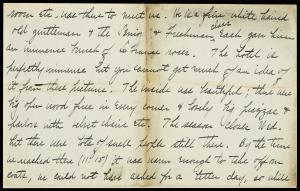 room etc, was there to meet us. He is a fine white haired
old gentleman & the Senior & Freshman class each gave him
an immense bunch of La France roses. The hotel is
perfectly immense but you cannot get much of an idea of
it from these pictures. The inside was beautiful; there were
big fun wood fires in every corner & lovely big piazzas &
parlors with velvet chairs etc. The season closes Wed.
but there were lots of swell people still there. By the time
we reached there (11:15) it was warm enough to take off our
coats, we could not have asked for a better day, so while